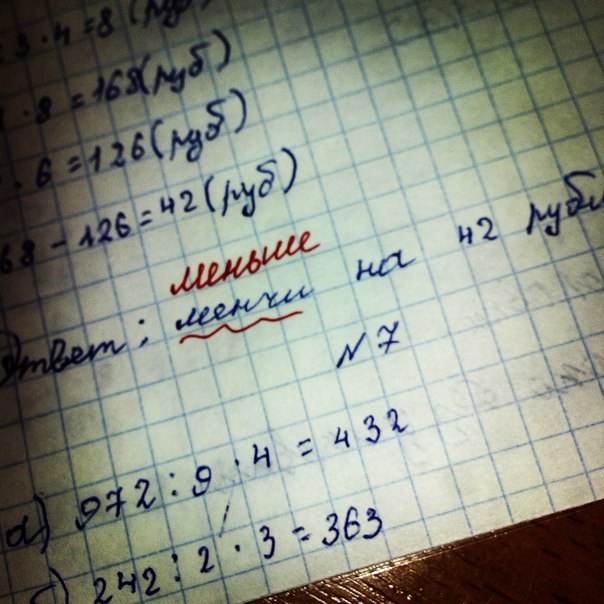 3 · 4 = 8 (руб)
· 8 = 168 (руб)
· 6 = 126 (руб)
68 - 126 = 42 (руб)
меньше
Ответ; менчи на 42 рубл
N 7
а) 972 : 9 · 4 = 432
242 : 2 · 3 = 363